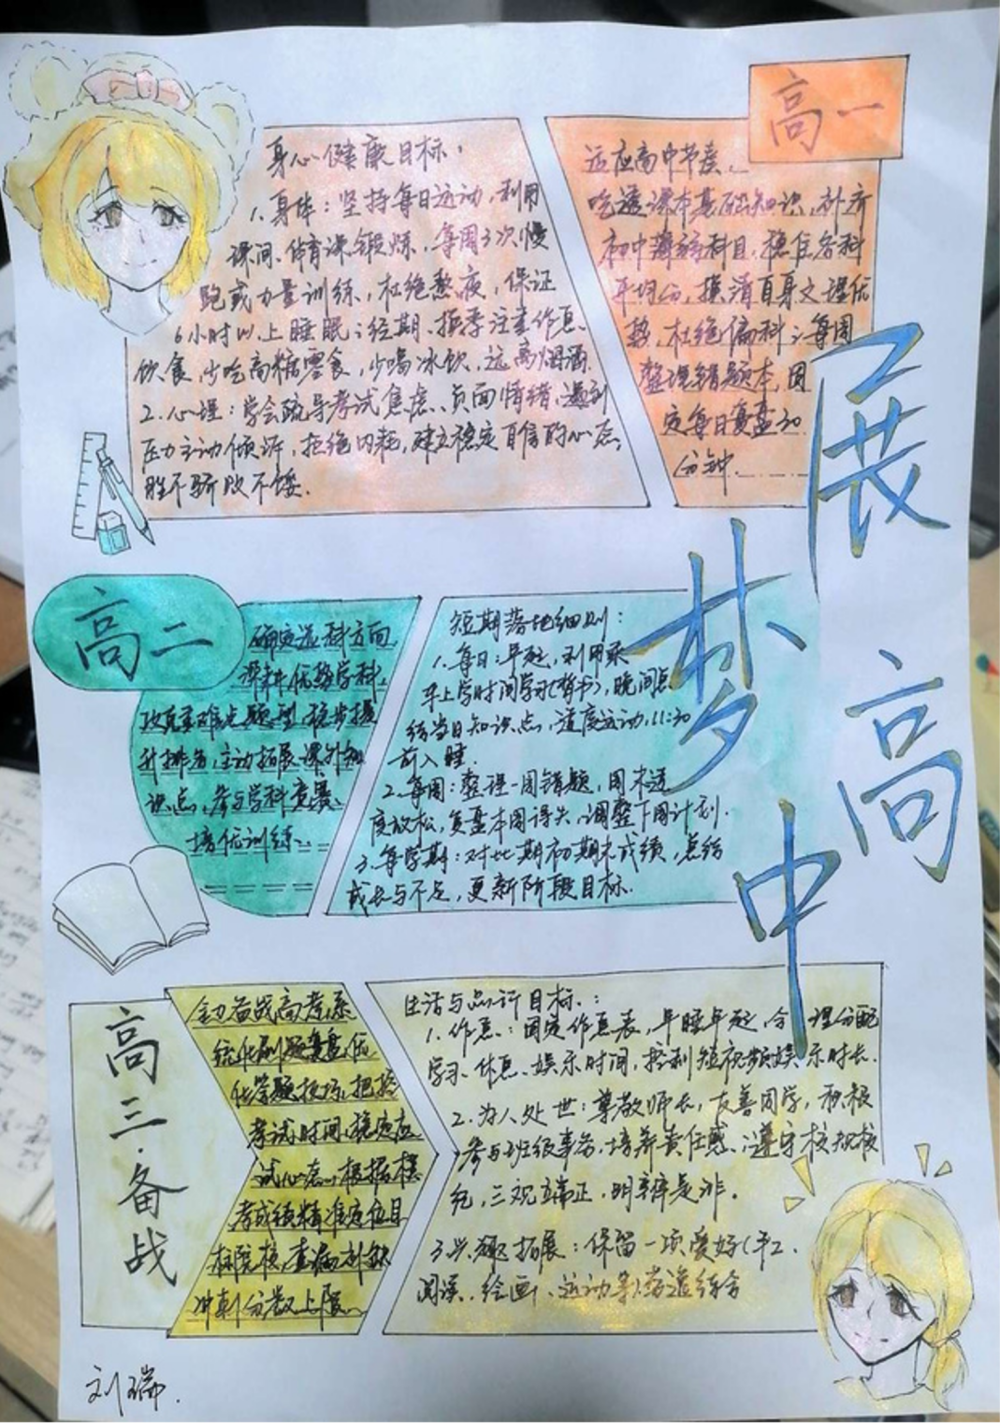 展梦高中
身心健康目标：
1.身体：坚持每日运动，利用
课间、体育课锻炼，每周3次慢
跑或力量训练，杜绝熬夜，保证
6小时以上睡眠；经期、换季注意作息、
饮食，少吃高糖零食，少喝冰饮，远离烟酒.
2.心理：学会疏导考试焦虑、负面情绪，遇到
压力主动倾诉，拒绝内耗，建立稳定自信的心态，
胜不骄败不馁.
高一
适应高中节奏、
吃透课本基础知识，补齐
初中薄弱科目，稳住各科
平均分，摸清自身文理优
势，杜绝偏科；每周
整理错题本，固
定每日复盘30
分钟.
高二
确定选科方向
深耕优势学科，
攻克重难点题型，稳步提
升排名，主动拓展课外知
识点，参与学科竞赛、
培优训练.
短期落地细则：
1.每日：早起，利用乘
车上学时间学习(背书)，晚间总
结当日知识点，适度运动，11:30
前入睡.
2.每周：整理一周错题，周末适
度放松，复盘本周得失，调整下周计划.
3.每学期：对比期初期末成绩，总结
成长与不足，更新阶段目标.
高三·备战
全力备战高考，系
统化刷题复盘，优
化答题技巧，把控
考试时间，稳定应
试心态，根据模
考成绩精准定位目
标院校，查漏补缺
冲刺分数上限.
生活与品行目标：
1.作息：固定作息表，早睡早起，合理分配
学习、休息、娱乐时间，控制短视频娱乐时长.
2.为人处世：尊敬师长，友善同学，积极
参与班级事务，培养责任感，遵守校规校
纪，三观端正，明辨是非.
3.兴趣拓展：保留一项爱好(手工、
阅读、绘画、运动等)
刘瑞.